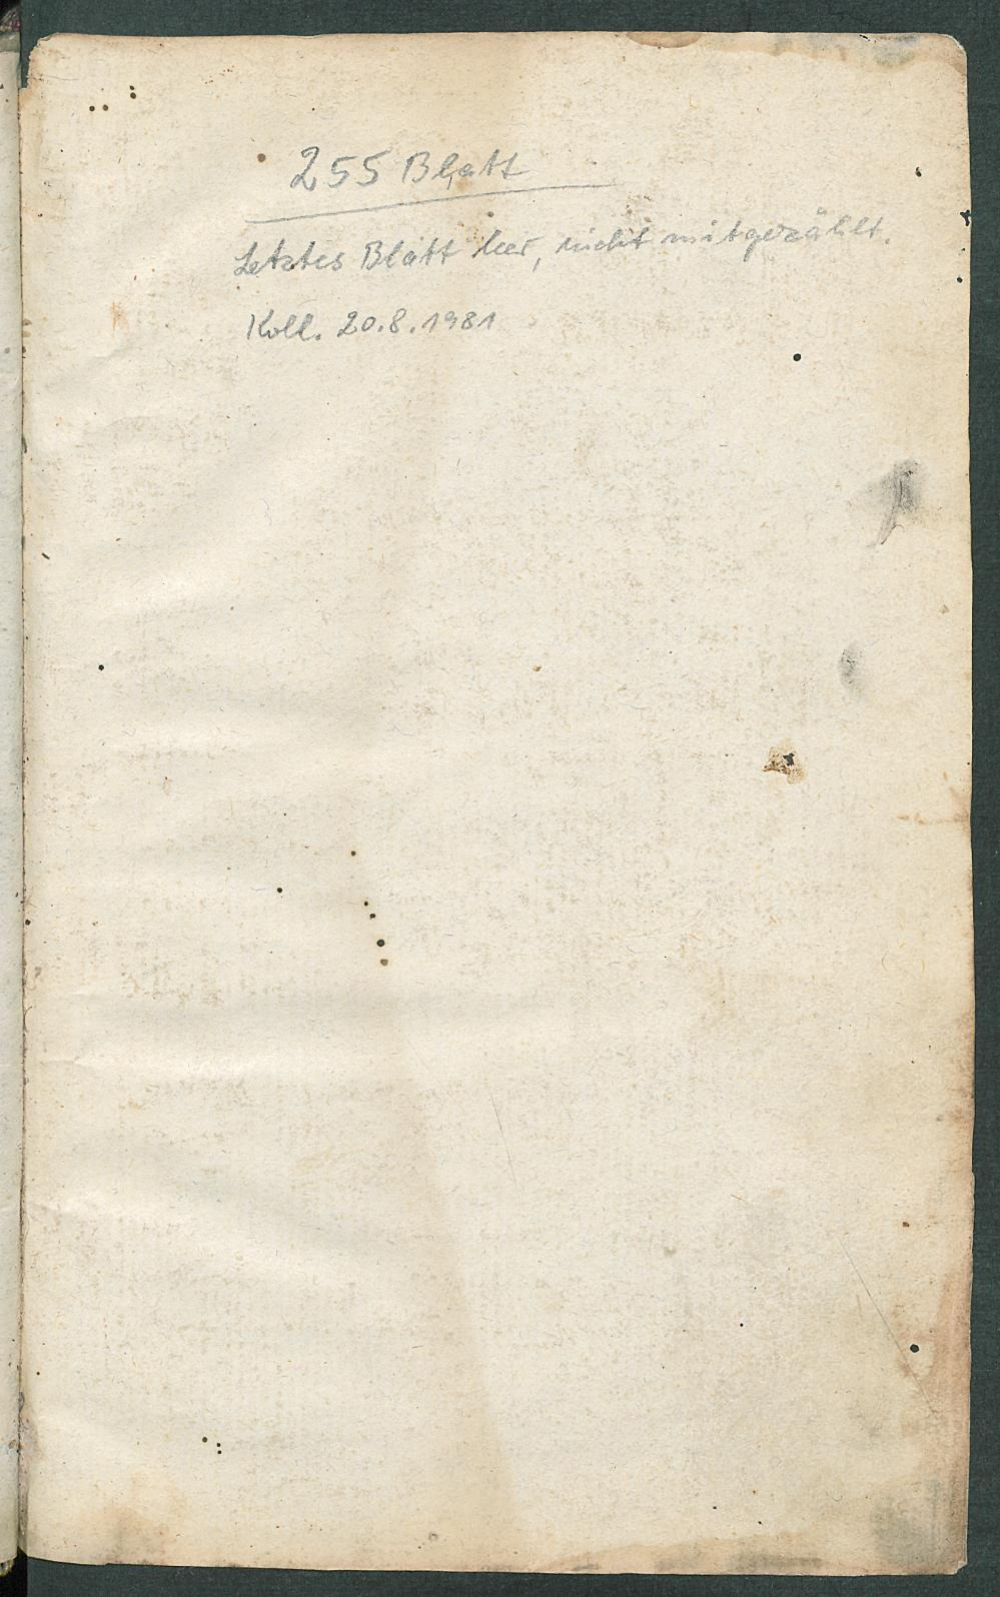 255 Blatt
Letztes Blatt leer, nicht mitgezählt.
Koll. 20.8.1981